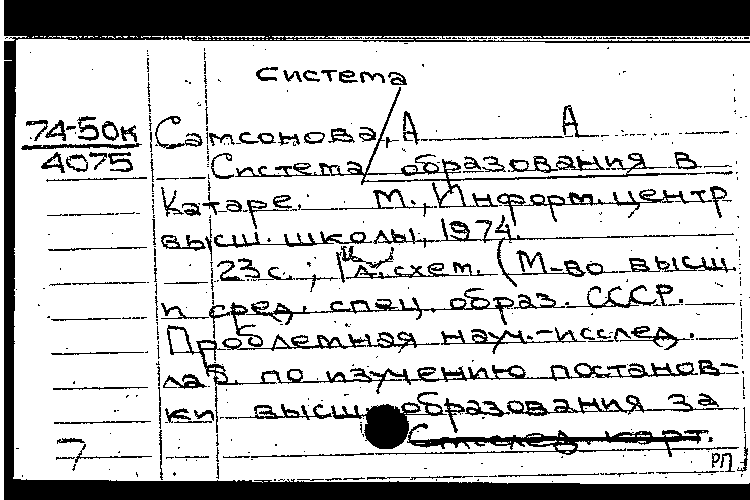 система
74-50к
4075
Самсонова, А А
Система образования в
Катаре. М., Информ. центр
высш. школы, 1974.
23 с.; 1 л. схем. (М-во высш.
и сред. спец. образ. СССР.
Проблемная науч.-исслед.
лаб. по изучению постанов-
ки высш. образования за
См. след. карт.
7
РП